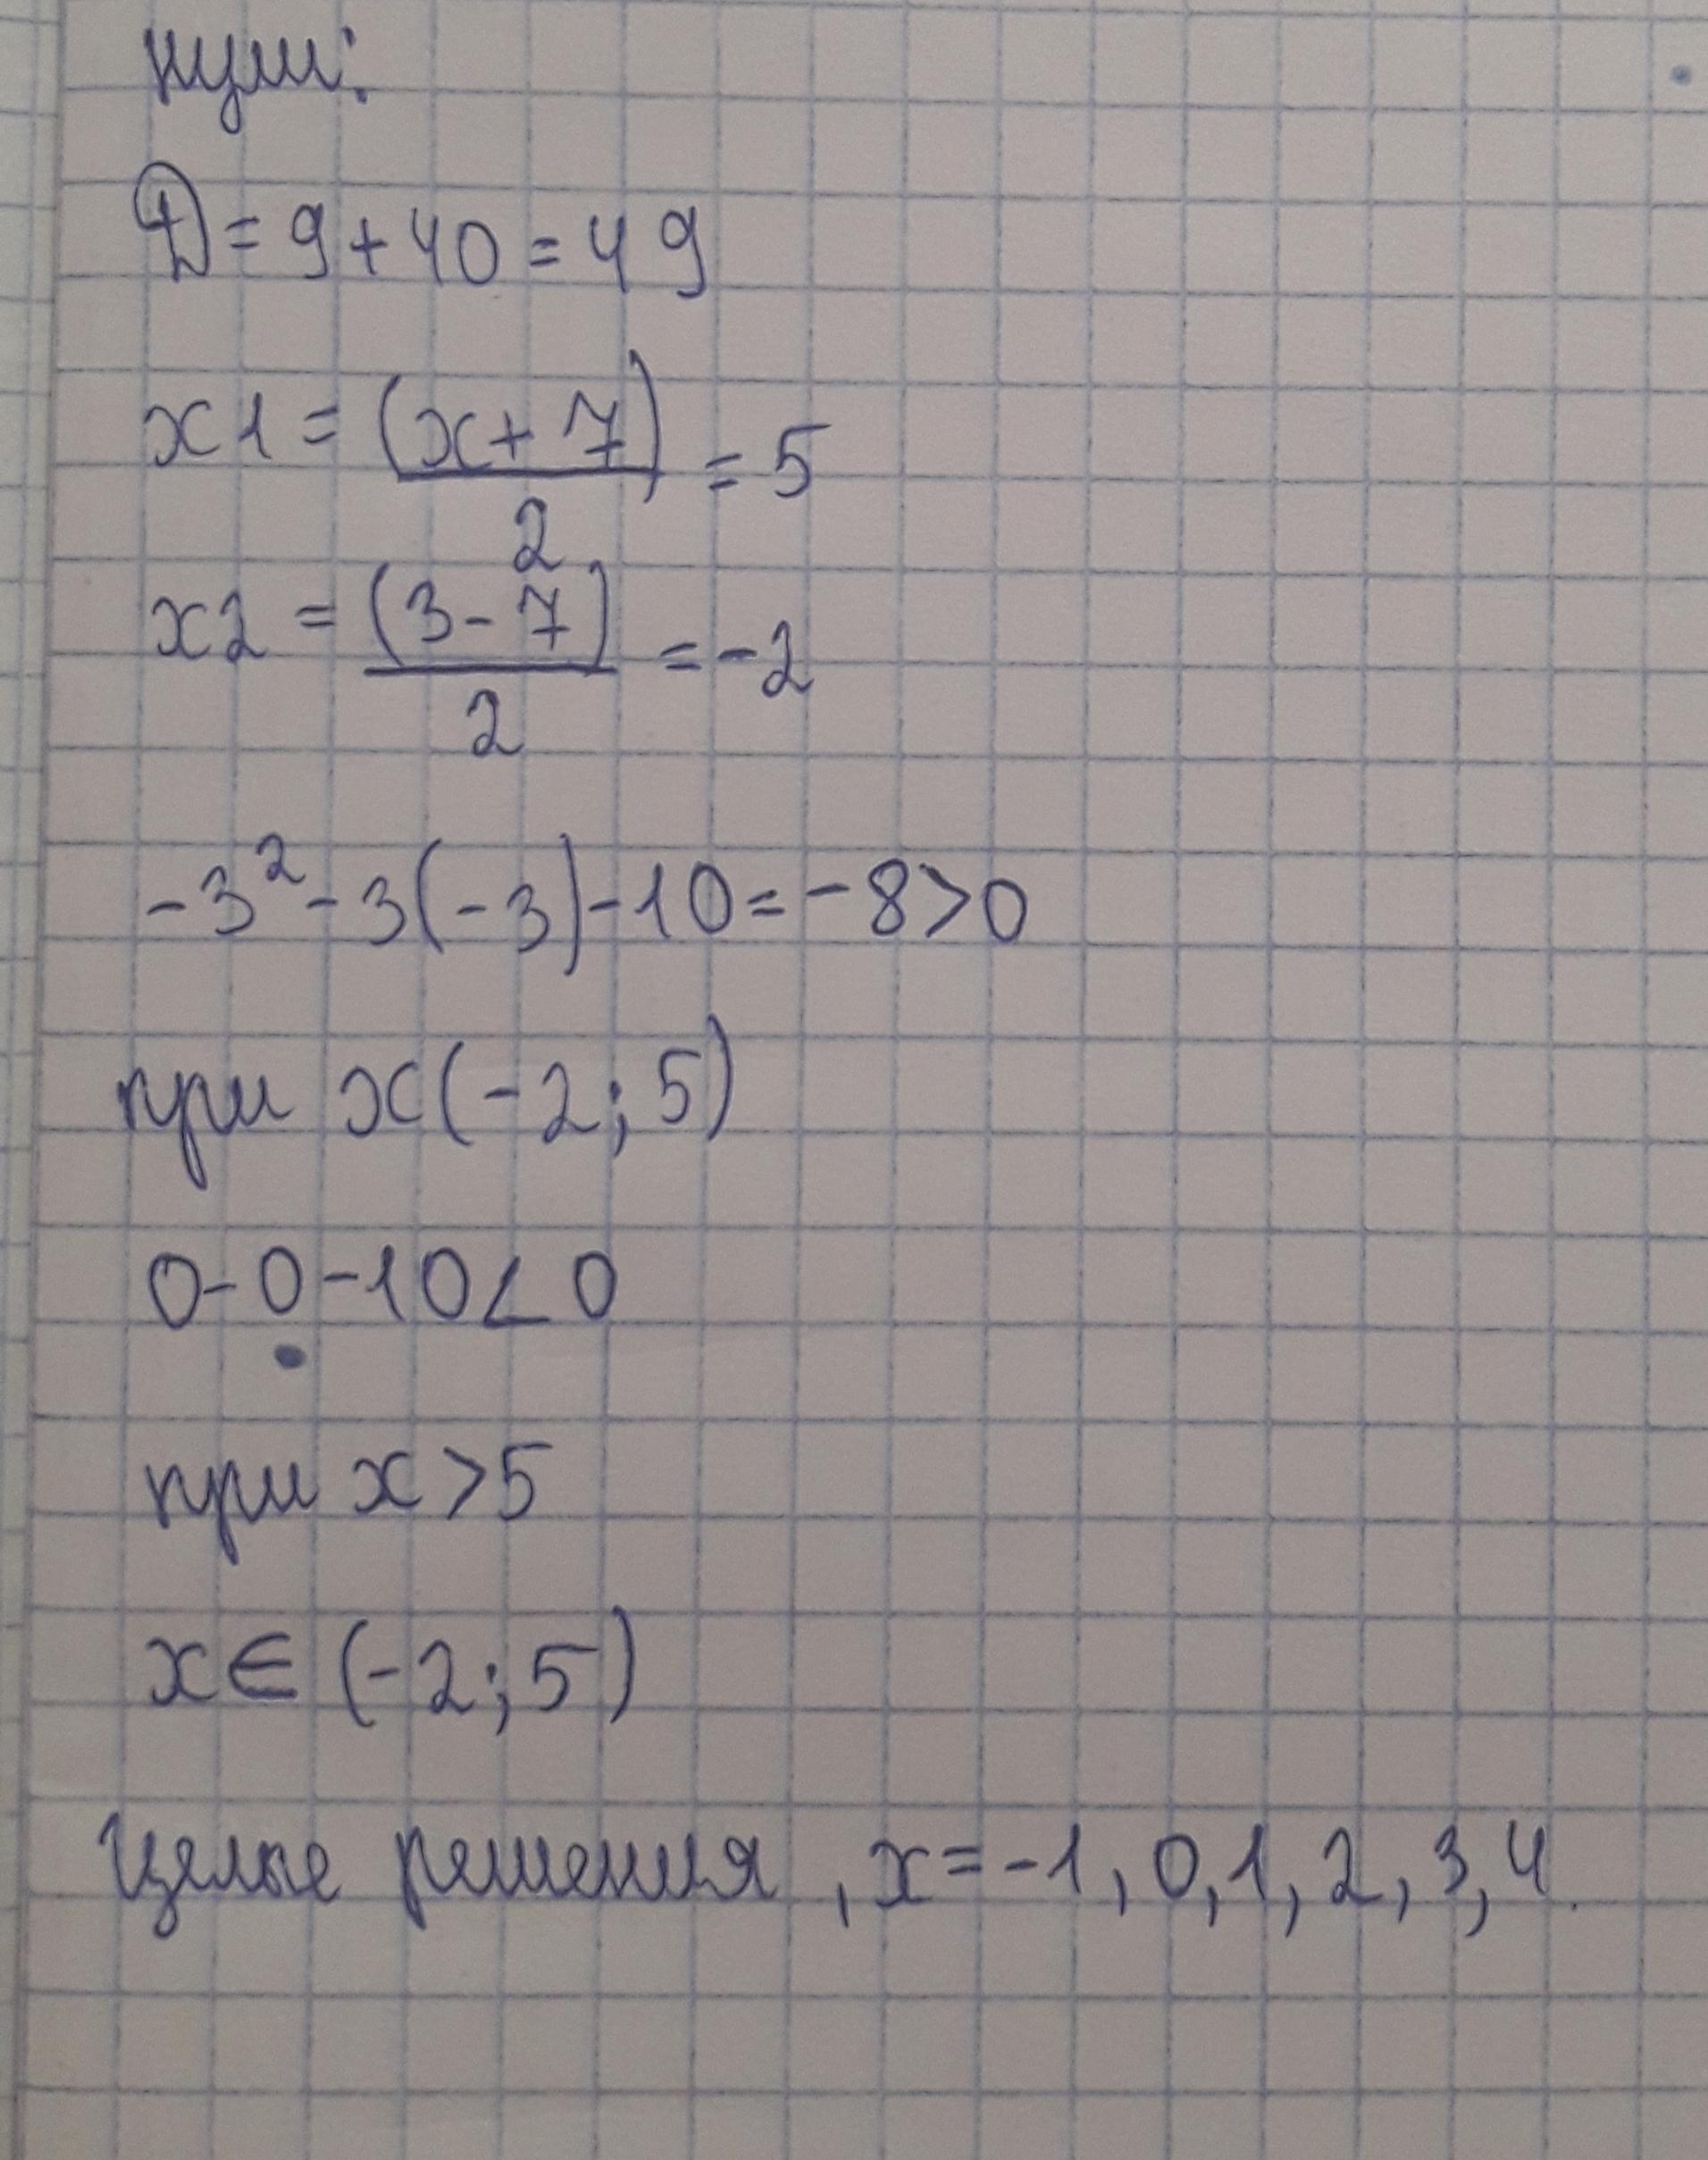 нули:
D = 9 + 40 = 49
x1 = (x + 7)/2 = 5
x2 = (3 - 7)/2 = -2
-3² - 3(-3) - 10 = -8 > 0
при x(-2; 5)
0 - 0 - 10 < 0
при x > 5
x ∈ (-2; 5)
Целые решения, x = -1, 0, 1, 2, 3, 4.